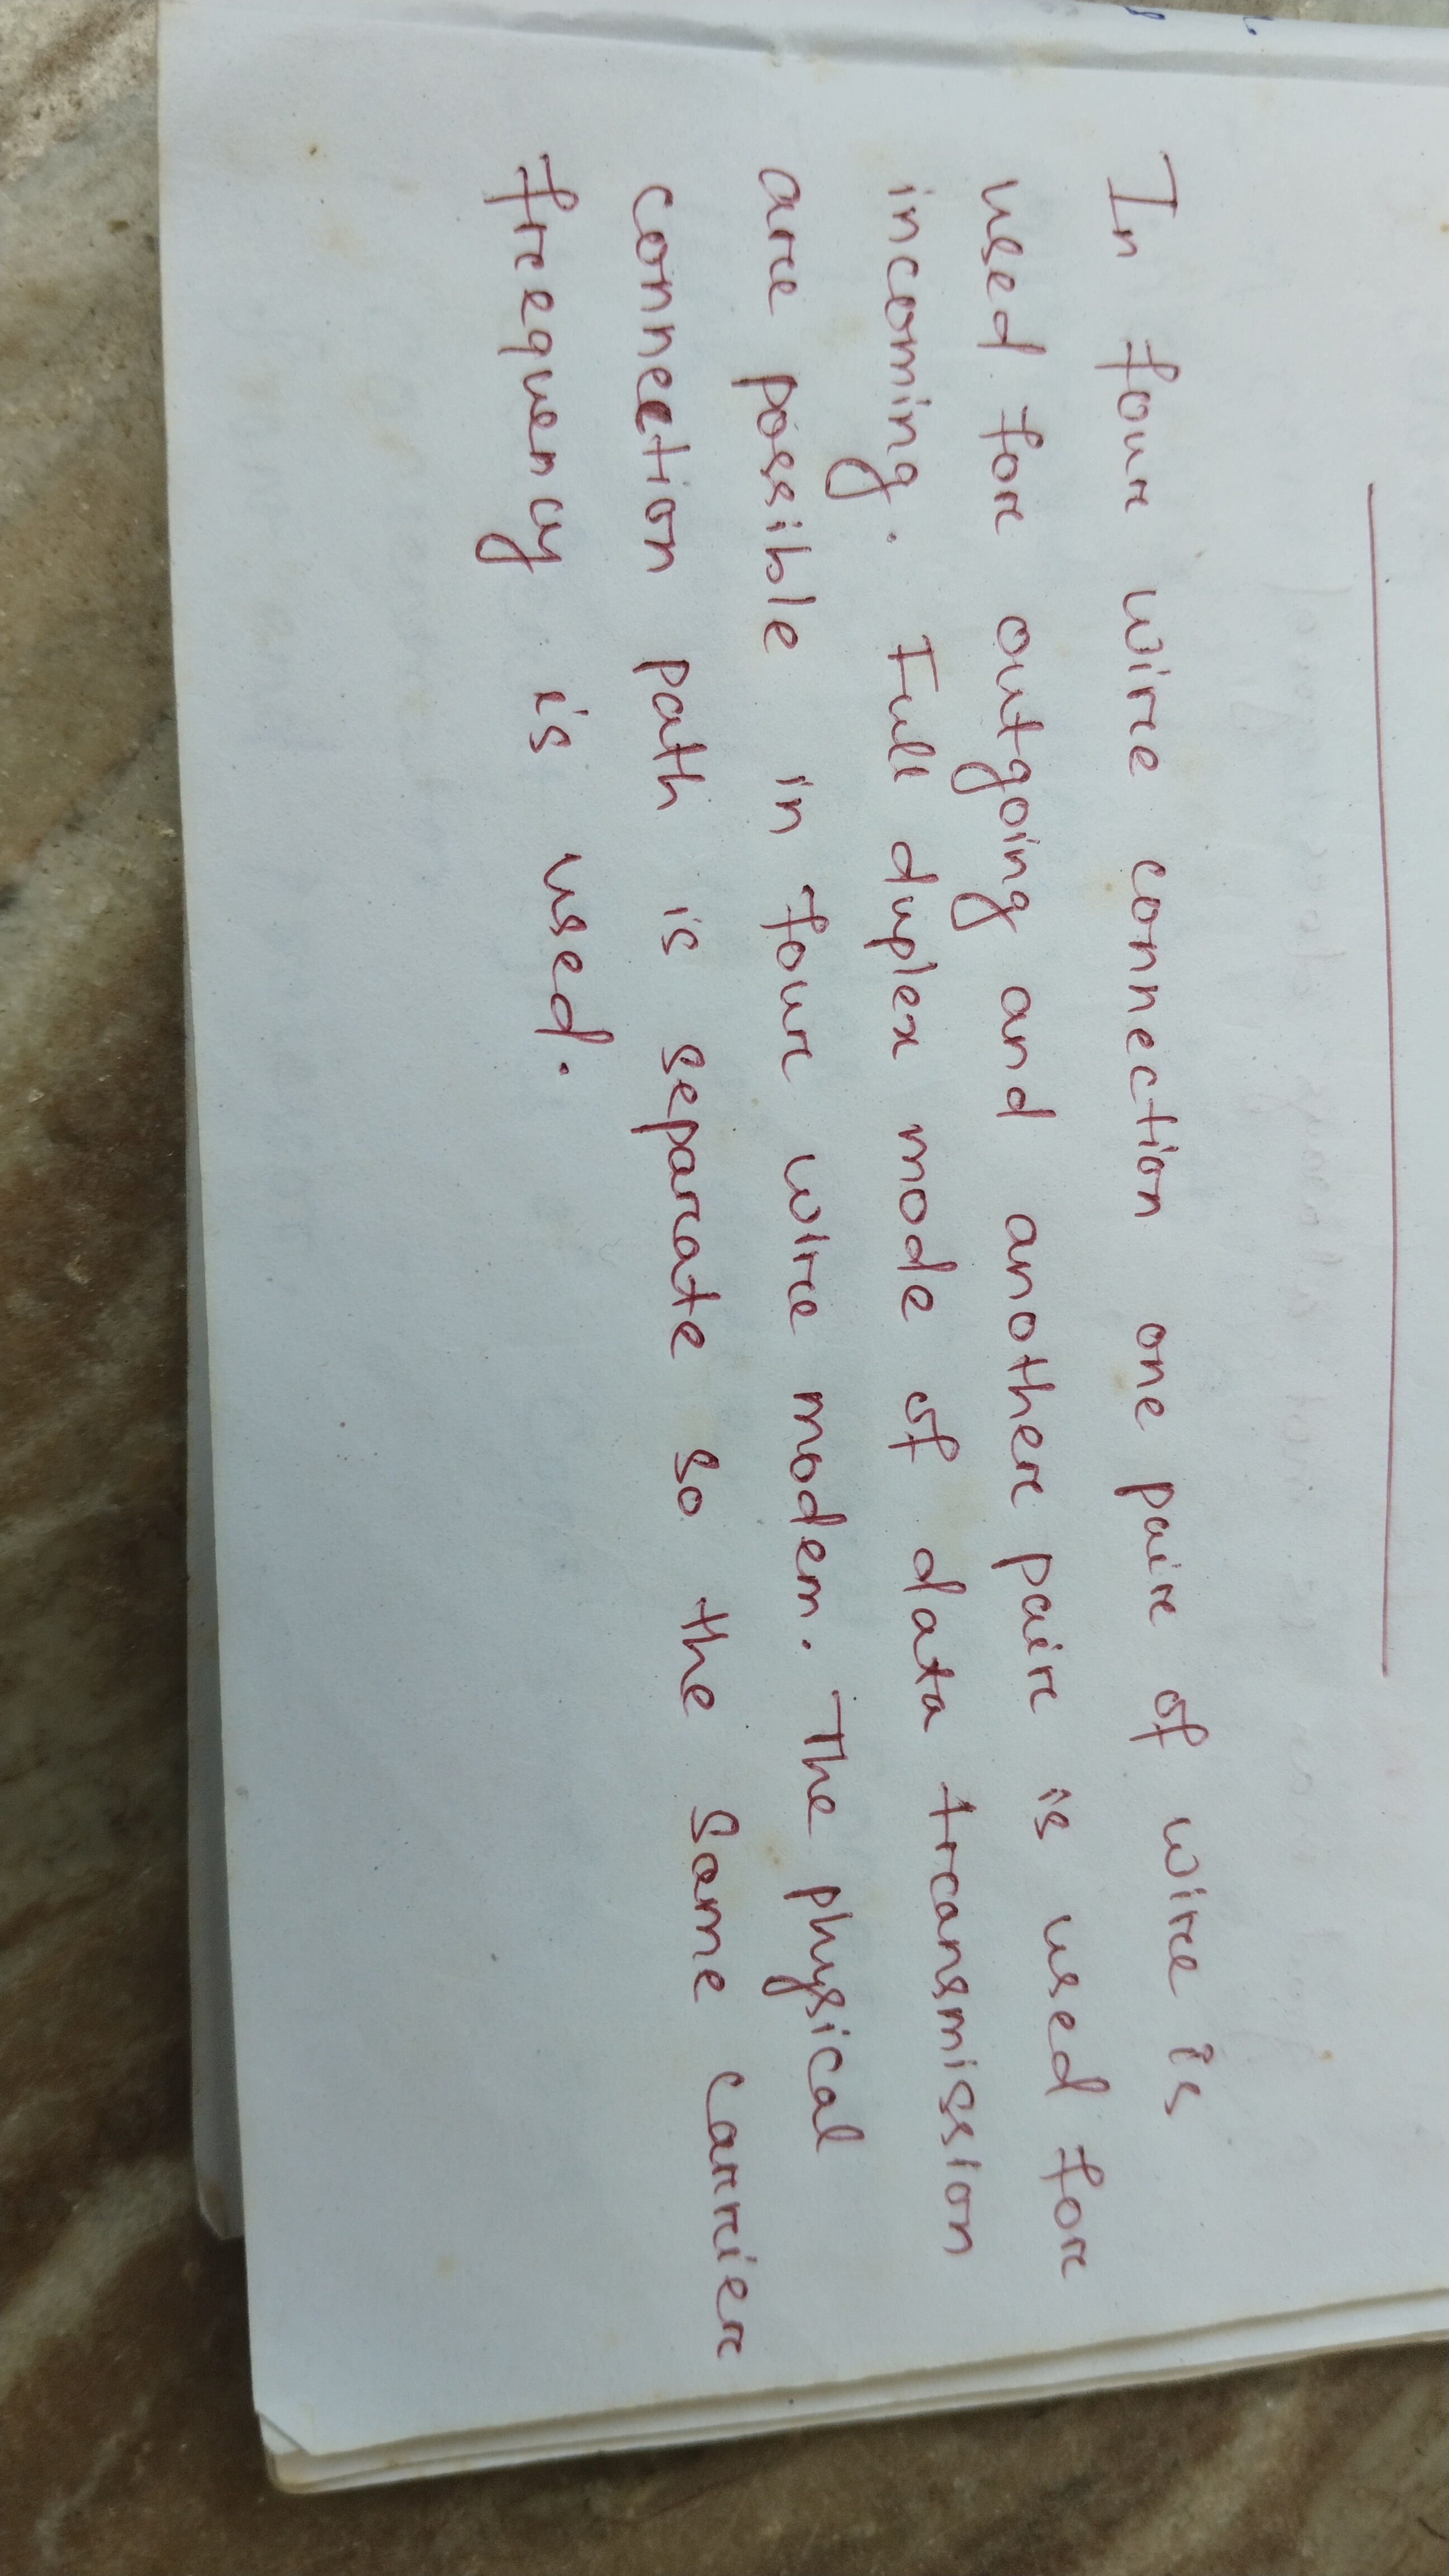 In four wire connection one pair of wire is
used for outgoing and another pair is used for
incoming. Full duplex mode of data transmission
are possible in four wire modem. The physical
connection path is separate so the same carrier
frequency is used.